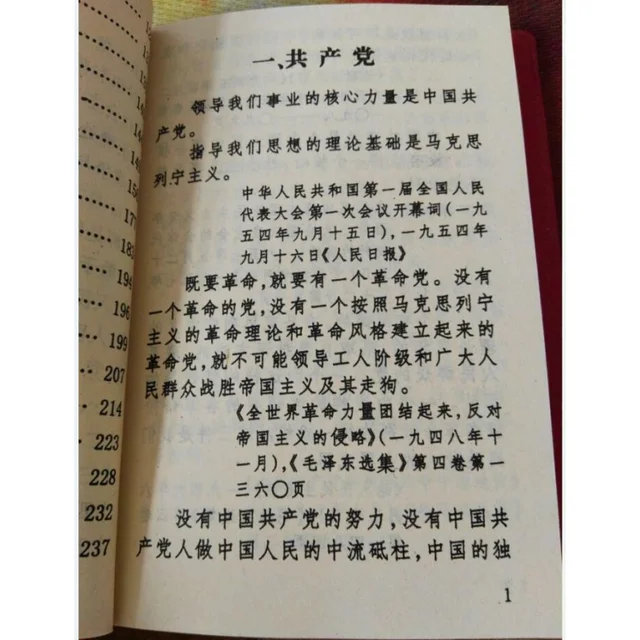 183
194
196
199
207
214
223
228
232
237
一、共产党
领导我们事业的核心力量是中国共
产党。
指导我们思想的理论基础是马克思
列宁主义。
中华人民共和国第一届全国人民
代表大会第一次会议开幕词(一九
五四年九月十五日),一九五四年
九月十六日《人民日报》
既要革命,就要有一个革命党。没有
一个革命的党,没有一个按照马克思列宁
主义的革命理论和革命风格建立起来的
革命党,就不可能领导工人阶级和广大人
民群众战胜帝国主义及其走狗。
《全世界革命力量团结起来,反对
帝国主义的侵略》(一九四八年十
一月),《毛泽东选集》第四卷第一
三六〇页
没有中国共产党的努力,没有中国共
产党人做中国人民的中流砥柱,中国的独
1